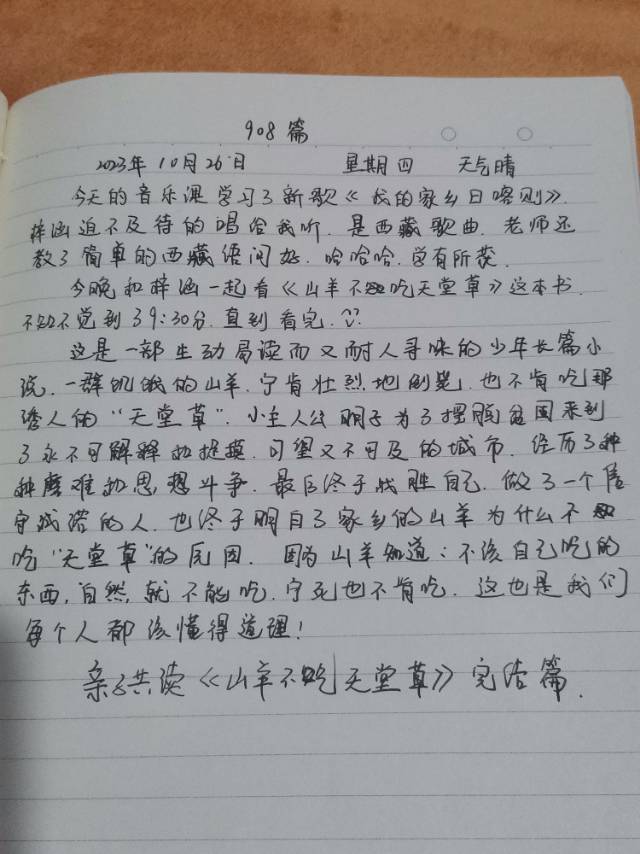 908篇
2023年10月26日 星期四 天气晴
今天的音乐课学习了新歌《我的家乡日喀则》.
梓涵迫不及待的唱给我听.是西藏歌曲.老师还
教了简单的西藏语问好.哈哈哈.曾有所获.
今晚和梓涵一起看《山羊不吃天堂草》这本书.
不知不觉到了9:30分.直到看完.
这是一部生动易读而又耐人寻味的少年长篇小
说.一群饥饿的山羊.宁肯壮烈地倒毙.也不肯吃那
诱人的“天堂草”.小主人公明子为了摆脱贫困来到
了永不可解释和捉摸.可望又不可及的城市.经历了种
种磨难和思想斗争.最后终于战胜自己.做了一个信
守诚诺的人.也终于明白了家乡的山羊为什么不
吃“天堂草”的原因.因为山羊知道:不该自己吃的
东西,自然,就不能吃.宁死也不肯吃.这也是我们
每个人都该懂得道理!
亲子共读《山羊不吃天堂草》完结篇.